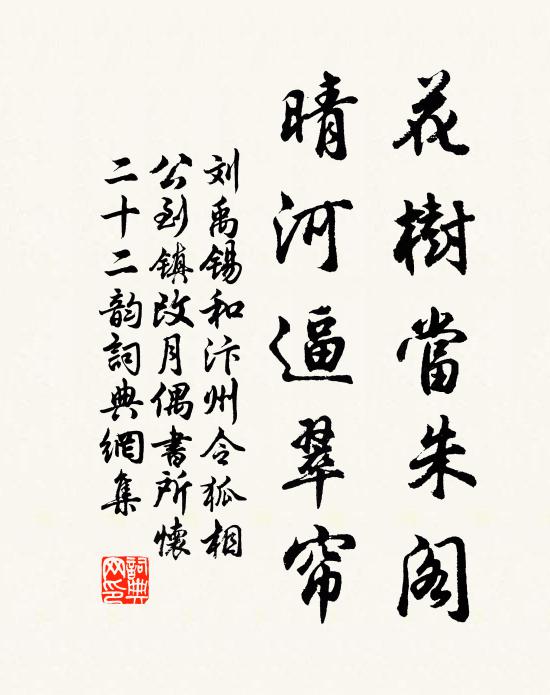 花樹當朱阁
晴河逼翠帘
刘禹锡和汴州令狐相
公到镇改月偶書所懷
二十二韵詞典網集
詞典
网印